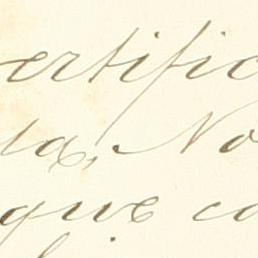 ertific
da, No
que co